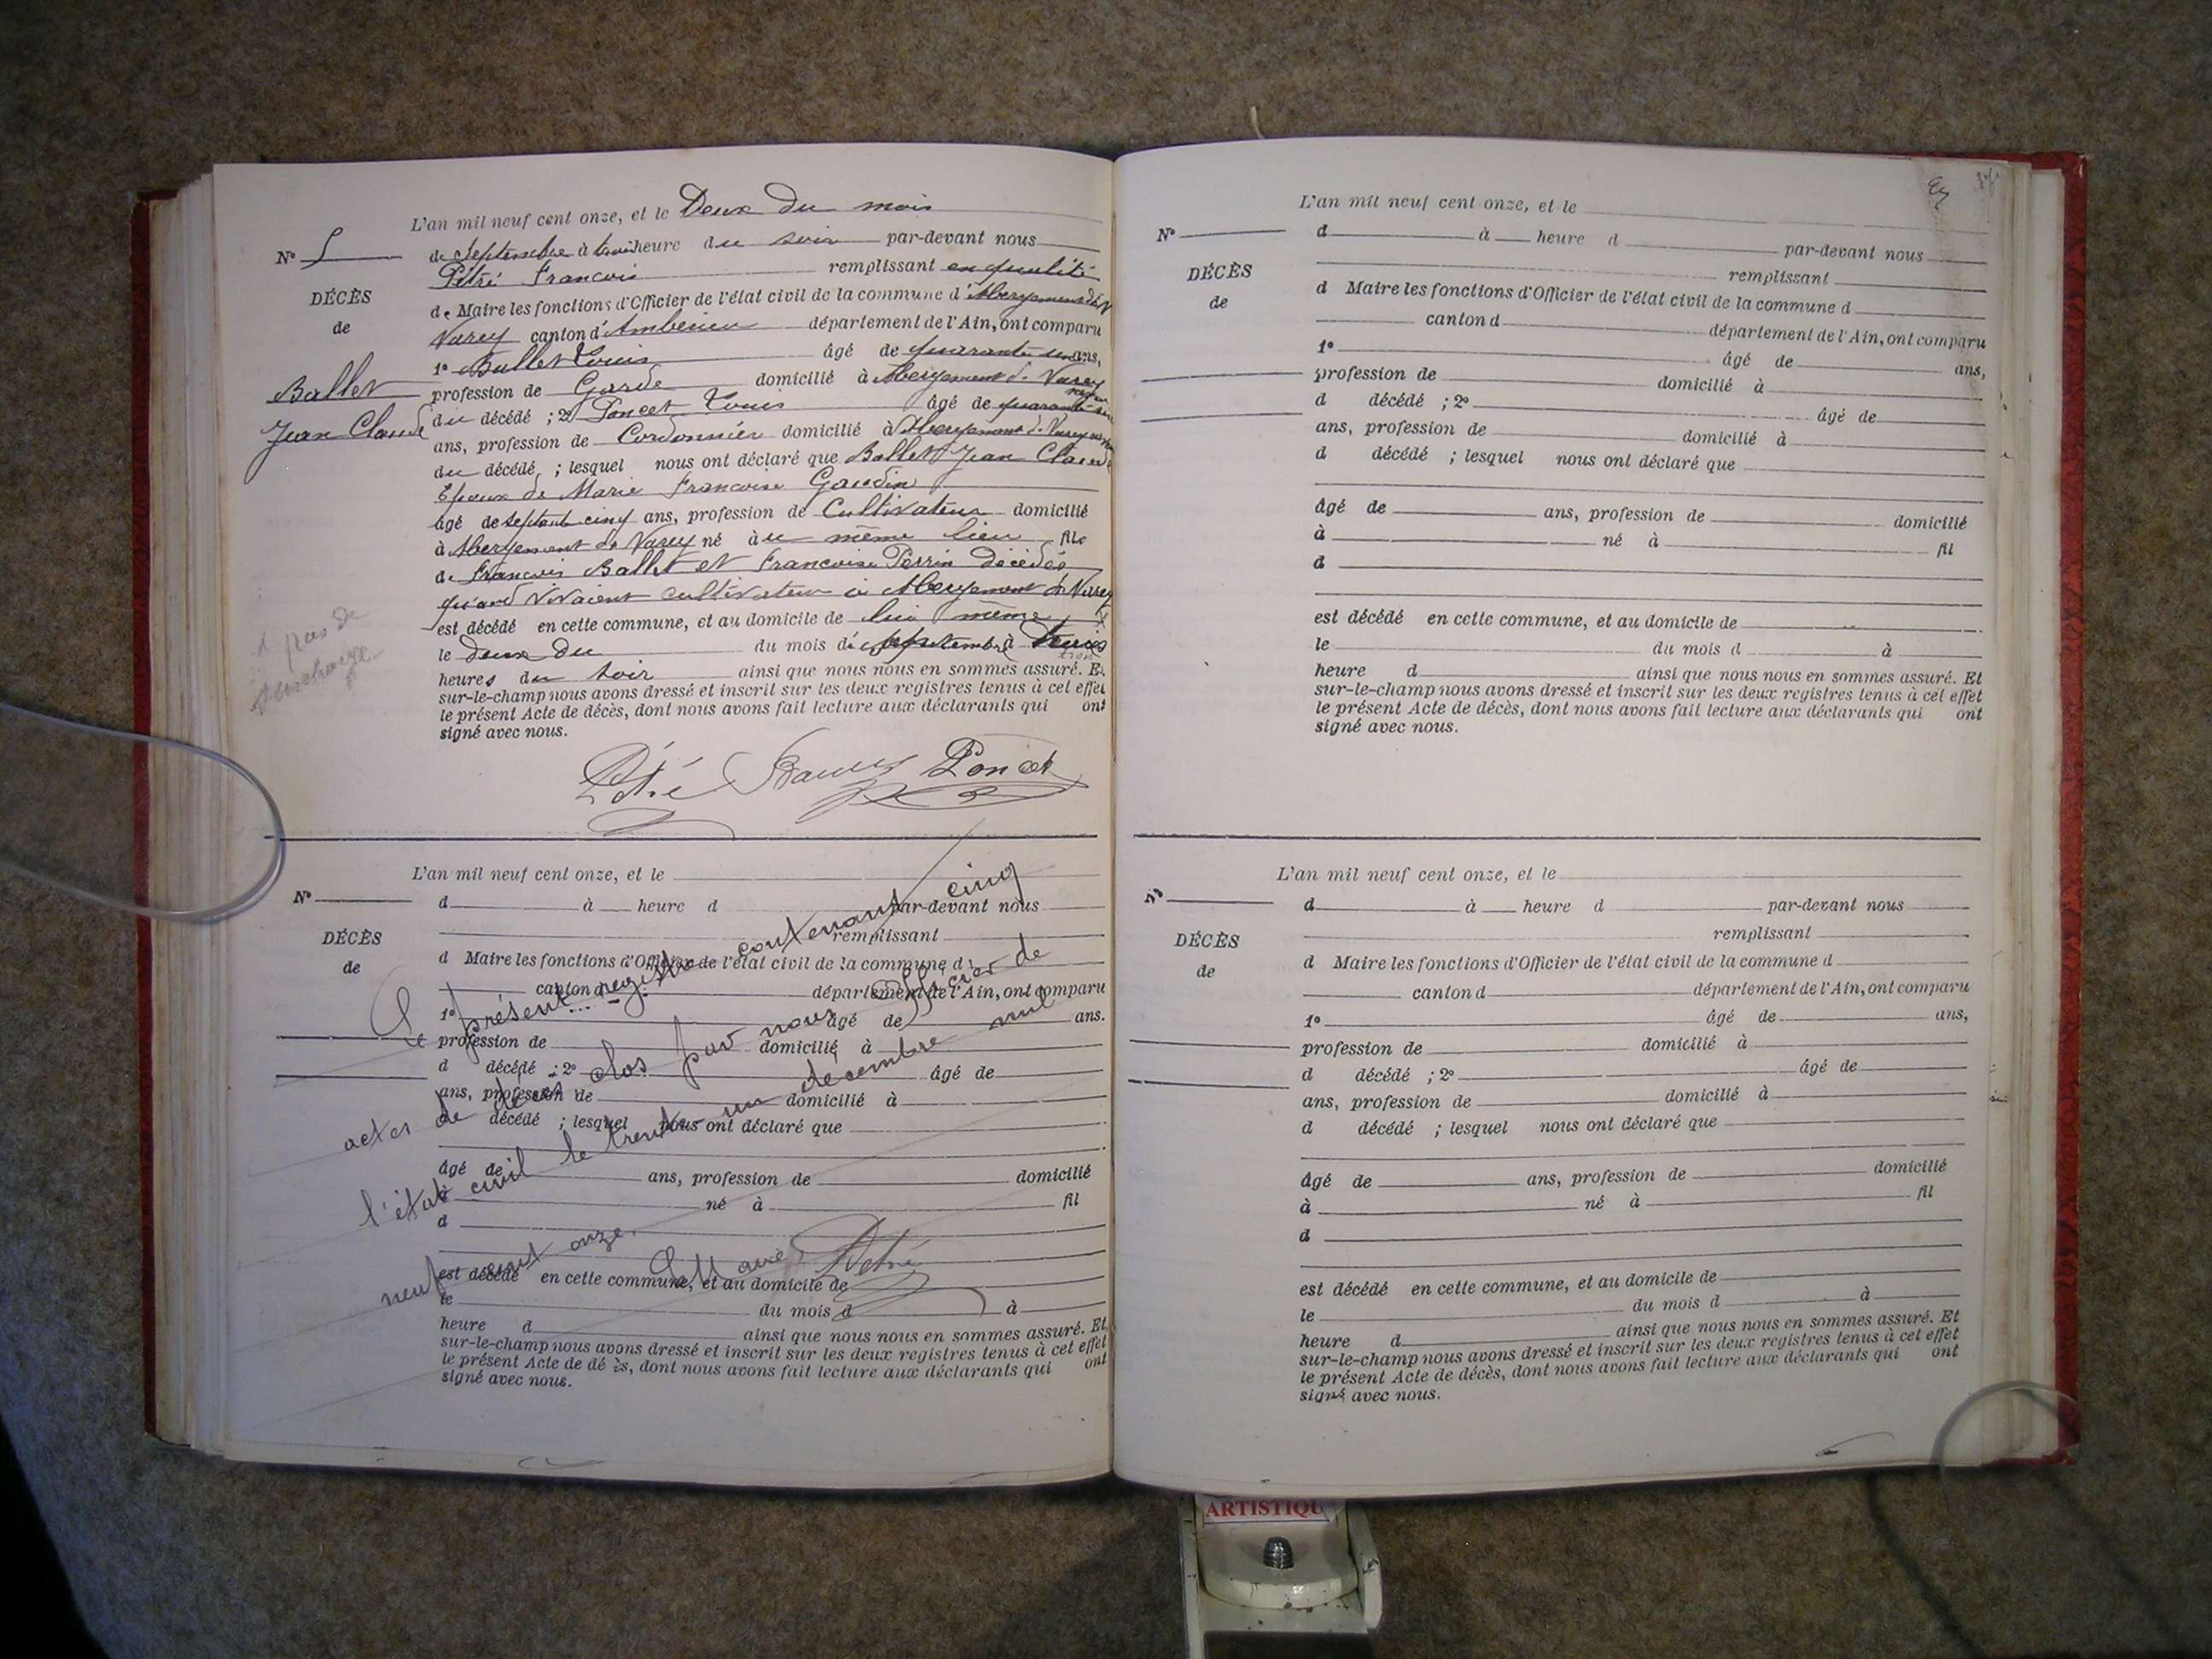 L'an mil neuf cent onze, et le Deux du mois
N° 5 de Septembre à trois heure du soir par-devant nous
Pétré Francois remplissant en qualité
DÉCÈS
de Maire les fonctions d'Officier de l'état civil de la commune d'Abergement de
de
Varey canton d'Ambérieu département de l'Ain, ont comparu
1° Ballet Louis âgé de quarante ans,
Ballet
profession de Garde domicilié à Abergement de Varey
Jean Claude
du décédé ; 2° Poncet Louis âgé de quarante
ans, profession de Cordonnier domicilié à Abergement de Varey
du décédé ; lesquel nous ont déclaré que Ballet Jean Claude
Epoux de Marie Francoise Gaudin
âgé de septante cinq ans, profession de Cultivateur domicilié
à Abergement de Varey né au même lieu fils
de Francois Ballet et Francoise Perrin décédés
quand vivaient cultivateur à Abergement de Varey
est décédé en cette commune, et au domicile de lui même
x pas de
surcharge
le deux du du mois de septembre à
heures du soir ainsi que nous nous en sommes assuré. Et
sur-le-champ nous avons dressé et inscrit sur les deux registres tenus à cet effet
le présent Acte de décès, dont nous avons fait lecture aux déclarants qui ont
signé avec nous.
Pétré Poncet
L'an mil neuf cent onze, et le
N° d à heure d par-devant nous
remplissant
DÉCÈS
d Maire les fonctions d'Officier de l'état civil de la commune d
de
canton d département de l'Ain, ont comparu
1° âgé de ans.
profession de domicilié à
d décédé ; 2° âgé de
ans, profession de domicilié à
d décédé ; lesquel nous ont déclaré que
âgé de ans, profession de domicilié
à né à fil
d
est décédé en cette commune, et au domicile de
le du mois d à
heure d ainsi que nous nous en sommes assuré. Et
sur-le-champ nous avons dressé et inscrit sur les deux registres tenus à cet effet
le présent Acte de dé ès, dont nous avons fait lecture aux déclarants qui ont
signé avec nous.
Le présent registre contenant cinq
actes de décès clos par nous officier de
l'état civil le trente un décembre mil
neuf cent onze.
Le Maire Pétré
L'an mil neuf cent onze, et le
N° d à heure d par-devant nous
remplissant
DÉCÈS
d Maire les fonctions d'Officier de l'état civil de la commune d
de
canton d département de l'Ain, ont comparu
1° âgé de ans,
profession de domicilié à
d décédé ; 2° âgé de
ans, profession de domicilié à
d décédé ; lesquel nous ont déclaré que
âgé de ans, profession de domicilié
à né à fil
d
est décédé en cette commune, et au domicile de
le du mois d à
heure d ainsi que nous nous en sommes assuré. Et
sur-le-champ nous avons dressé et inscrit sur les deux registres tenus à cet effet
le présent Acte de décès, dont nous avons fait lecture aux déclarants qui ont
signé avec nous.
L'an mil neuf cent onze, et le
N° d à heure d par-devant nous
remplissant
DÉCÈS
d Maire les fonctions d'Officier de l'état civil de la commune d
de
canton d département de l'Ain, ont comparu
1° âgé de ans,
profession de domicilié à
d décédé ; 2° âgé de
ans, profession de domicilié à
d décédé ; lesquel nous ont déclaré que
âgé de ans, profession de domicilié
à né à fil
d
est décédé en cette commune, et au domicile de
le du mois d à
heure d ainsi que nous nous en sommes assuré. Et
sur-le-champ nous avons dressé et inscrit sur les deux registres tenus à cet effet
le présent Acte de décès, dont nous avons fait lecture aux déclarants qui ont
signé avec nous.
ARTISTIQU